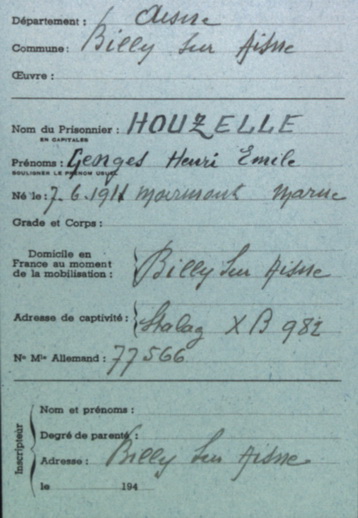 Département : Aisne
Commune : Billy Sur Aisne
Œuvre :
Nom du Prisonnier : HOUZELLE
EN CAPITALES
Prénoms : Georges Henri Emile
SOULIGNER LE PRÉNOM USUEL
Né le : 7.6.1911 Marne
Grade et Corps :
Domicile en
France au moment
de la mobilisation : Billy Sur Aisne
Adresse de captivité : Stalag XB 982
Nº Mle Allemand : 77566
Inscripteur
Nom et prénoms :
Degré de parenté :
Adresse : Billy Sur Aisne
le 194